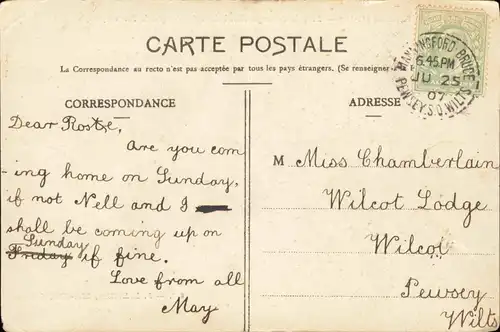 CARTE POSTALE
La Correspondance au recto n'est pas acceptée par tous les pays étrangers. (Se renseigner à la
CORRESPONDANCE
Dear Roste,
Are you com
-ing home on Sunday,
if not Nell and I
shall be coming up on
Sunday
Friday if fine.
Love from all
May
MANNINGFORD BRUCE
6.45 PM
JU 25
07
PEWSEY S.O. WILTS
ADRESSE
M Miss Chamberlain
Wilcot Lodge
Wilcot
Pewsey
Wilts